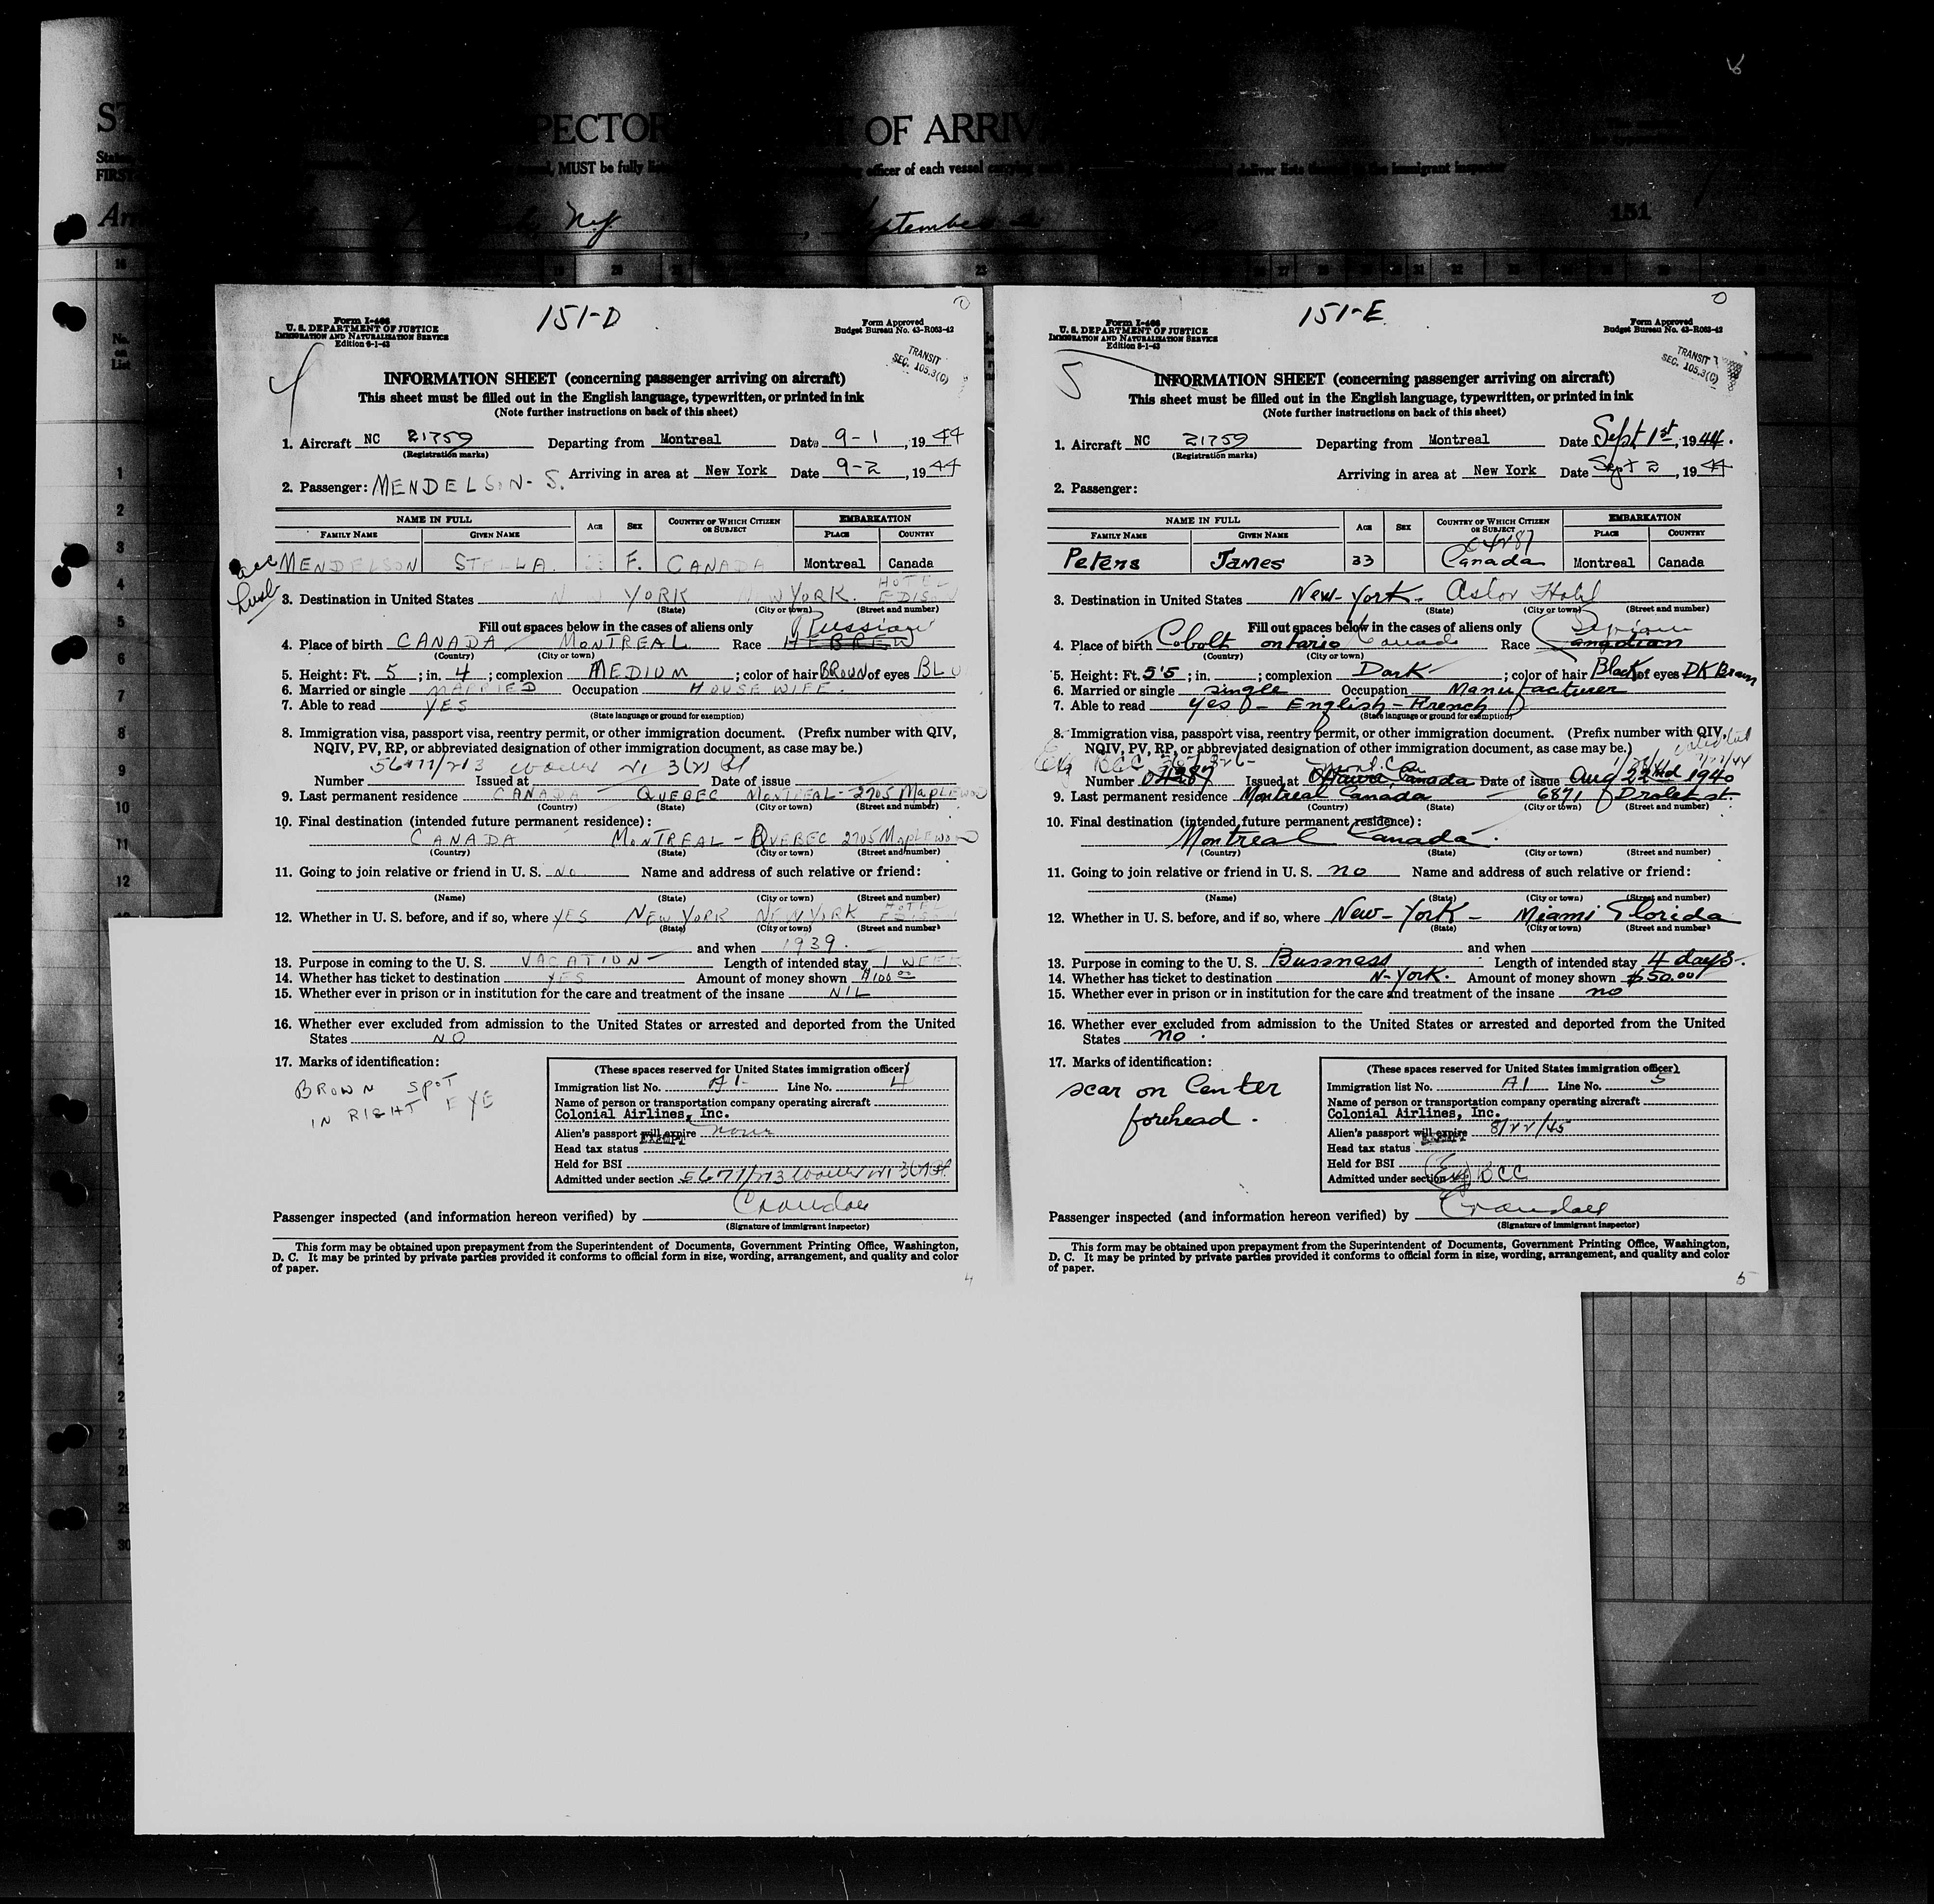 PECTOR
T OF ARRIV
, MUST be fully
officer of each vessel
deliver lists
immigrant inspector
N.Y.
September
151
151-D
Form I-466
U. S. DEPARTMENT OF JUSTICE
IMMIGRATION AND NATURALIZATION SERVICE
Edition 8-1-43
Form Approved
Budget Bureau No. 43-R063-42
TRANSIT
SEC. 105.3(C)
4
INFORMATION SHEET (concerning passenger arriving on aircraft)
This sheet must be filled out in the English language, typewritten, or printed in ink
(Note further instructions on back of this sheet)
1. Aircraft NC 21759 Departing from Montreal Date 9-1, 1944
(Registration marks)
Arriving in area at New York Date 9-2, 1944
2. Passenger: MENDELSON- S.
NAME IN FULL AGE SEX COUNTRY OF WHICH CITIZEN OR SUBJECT EMBARKATION
FAMILY NAME GIVEN NAME PLACE COUNTRY
acc husb
MENDELSON STELLA. F. CANADA Montreal Canada
3. Destination in United States NEW YORK NEW YORK. HOTEL EDISON
(State) (City or town) (Street and number)
Fill out spaces below in the cases of aliens only
Russian
4. Place of birth CANADA MONTREAL Race HEBREW
(Country) (City or town)
5. Height: Ft. 5; in. 4; complexion MEDIUM; color of hair BROWN of eyes BLU
6. Married or single MARRIED Occupation HOUSEWIFE.
7. Able to read YES
(State language or ground for exemption)
8. Immigration visa, passport visa, reentry permit, or other immigration document. (Prefix number with QIV,
NQIV, PV, RP, or abbreviated designation of other immigration document, as case may be.)
Number Issued at Date of issue
9. Last permanent residence CANADA QUEBEC MONTREAL- 2705 Maplewood
(Country) (State) (City or town) (Street and number)
10. Final destination (intended future permanent residence):
CANADA MONTREAL - QUEBEC 2705 Maplewood
(Country) (State) (City or town) (Street and number)
11. Going to join relative or friend in U. S. No. Name and address of such relative or friend:
(Name) (State) (City or town) (Street and number)
12. Whether in U. S. before, and if so, where YES NEW YORK NEW YORK HOTEL EDISON
(State) (City or town) (Street and number)
and when 1939.
13. Purpose in coming to the U. S. VACATION- Length of intended stay 1 WEEK
14. Whether has ticket to destination YES Amount of money shown $100 00
15. Whether ever in prison or in institution for the care and treatment of the insane NIL
16. Whether ever excluded from admission to the United States or arrested and deported from the United
States NO
17. Marks of identification:
BROWN SPOT
IN RIGHT EYE
(These spaces reserved for United States immigration officer)
Immigration list No. A1- Line No. 4
Name of person or transportation company operating aircraft
Colonial Airlines, Inc.
Alien's passport will expire none
EXEMPT
Head tax status
Held for BSI
Admitted under section
Crandall
Passenger inspected (and information hereon verified) by
(Signature of immigrant inspector)
This form may be obtained upon prepayment from the Superintendent of Documents, Government Printing Office, Washington,
D. C. It may be printed by private parties provided it conforms to official form in size, wording, arrangement, and quality and color
of paper.
4
151-E
Form I-466
U. S. DEPARTMENT OF JUSTICE
IMMIGRATION AND NATURALIZATION SERVICE
Edition 8-1-43
Form Approved
Budget Bureau No. 43-R063-42
TRANSIT
SEC. 105.3(C)
5
INFORMATION SHEET (concerning passenger arriving on aircraft)
This sheet must be filled out in the English language, typewritten, or printed in ink
(Note further instructions on back of this sheet)
1. Aircraft NC 21759 Departing from Montreal Date Sept 1st, 1944.
(Registration marks)
Arriving in area at New York Date Sept 2, 1944
2. Passenger:
NAME IN FULL AGE SEX COUNTRY OF WHICH CITIZEN OR SUBJECT EMBARKATION
FAMILY NAME GIVEN NAME PLACE COUNTRY
04287
Peters James 33 Canada Montreal Canada
3. Destination in United States New-York- Astor Hotel
(State) (City or town) (Street and number)
Fill out spaces below in the cases of aliens only
Syrian
4. Place of birth Cobolt ontario Canad Race Canadian
(Country) (City or town)
5. Height: Ft. 5'5; in.; complexion Dark; color of hair Black of eyes DK Brown
6. Married or single single Occupation Manufacturer
7. Able to read yes - English - French
(State language or ground for exemption)
8. Immigration visa, passport visa, reentry permit, or other immigration document. (Prefix number with QIV,
NQIV, PV, RP, or abbreviated designation of other immigration document, as case may be.)
BCC
Number 04287 Issued at Ottawa Canada Date of issue Aug 22nd 1940
9. Last permanent residence Montreal Canada - 6871 Drolet st.
(Country) (State) (City or town) (Street and number)
10. Final destination (intended future permanent residence):
Montreal Canada.
(Country) (State) (City or town) (Street and number)
11. Going to join relative or friend in U. S. no Name and address of such relative or friend:
(Name) (State) (City or town) (Street and number)
12. Whether in U. S. before, and if so, where New-York- Miami Florida
(State) (City or town) (Street and number)
and when
13. Purpose in coming to the U. S. Bussness Length of intended stay 4 days.
14. Whether has ticket to destination N-York. Amount of money shown $50.00
15. Whether ever in prison or in institution for the care and treatment of the insane no
16. Whether ever excluded from admission to the United States or arrested and deported from the United
States no.
17. Marks of identification:
scar on Center
forehead.
(These spaces reserved for United States immigration officer)
Immigration list No. A1 Line No. 5
Name of person or transportation company operating aircraft
Colonial Airlines, Inc.
Alien's passport will expire 8/22/45
EXEMPT
Head tax status
Held for BSI
Admitted under section (Ex) BCC
Crandall
Passenger inspected (and information hereon verified) by
(Signature of immigrant inspector)
This form may be obtained upon prepayment from the Superintendent of Documents, Government Printing Office, Washington,
D. C. It may be printed by private parties provided it conforms to official form in size, wording, arrangement, and quality and color
of paper.
5